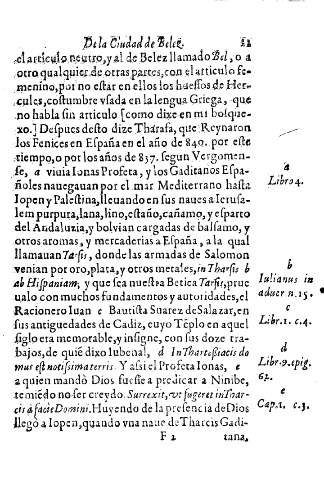 De la Ciudad de Belez. 22
el articulo neutro, y al de Belez llamado Bel, o a
otro qualquier de otras partes, con el articulo fe-
menino, por no estar en ellos los huessos de Her-
cules, costumbre vsada en la lengua Griega, que
no habla sin articulo [como dixe en mi bolque-
xo.] Despues desto dize Tharafa, que Reynaron
los Fenices en España en el año de 840. por este
tiempo, o por los años de 837. segun Vergomen-
se, a viuia Ionas Profeta, y los Gaditanos Espa-
ñoles nauegauan por el mar Mediterrano hasta
Iopen y Palestina, lleuando en sus naues a Ierusa-
lem purpura, lana, lino, estaño, cañamo, y esparto
del Andaluzia, y bolvian cargadas de balsamo, y
otros aromas, y mercaderias a España, a la qual
llamauan Tarsis, donde las armadas de Salomon
venian por oro, plata, y otros metales, in Tharsis b
ab Hispaniam; y que sea nuestra Betica Tarsis, prue
ualo con muchos fundamentos y autoridades, el
Racionero Iuan c Bautista Suarez de Salazar, en
sus antiguedades de Cadiz, cuyo Tẽplo en aquel
siglo era memorable, y insigne, con sus doze tra-
bajos, de quiẽ dixo Iubenal, d In Thartessiacis do
mus est notissima terris. Y assi el Profeta Ionas, e
a quien mandò Dios fuesse a predicar a Ninibe,
temiẽdo no ser creydo. Surrexit, vt fugeret in Thar-
cis à facie Domini. Huyendo de la presencia de Dios
llegò a Iopen, quando vna naue de Tharcis Gadi-
F 2 tana,
a
Libro 4.
b
Iulianus in
aduer n. 15.
c
Libr. 1. c. 4.
d
Libr. 9. epig.
62.
e
Cap. 1. c. 3.